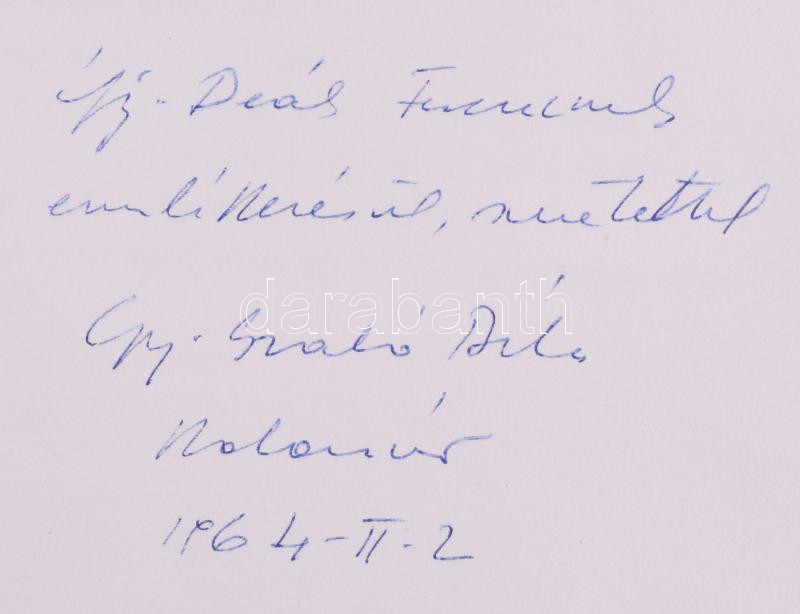 ifj. Deák Ferencnek
emlékezésül, szeretettel
darabanth
Gy. Szabó Béla
Kolozsvár
1964-II-2